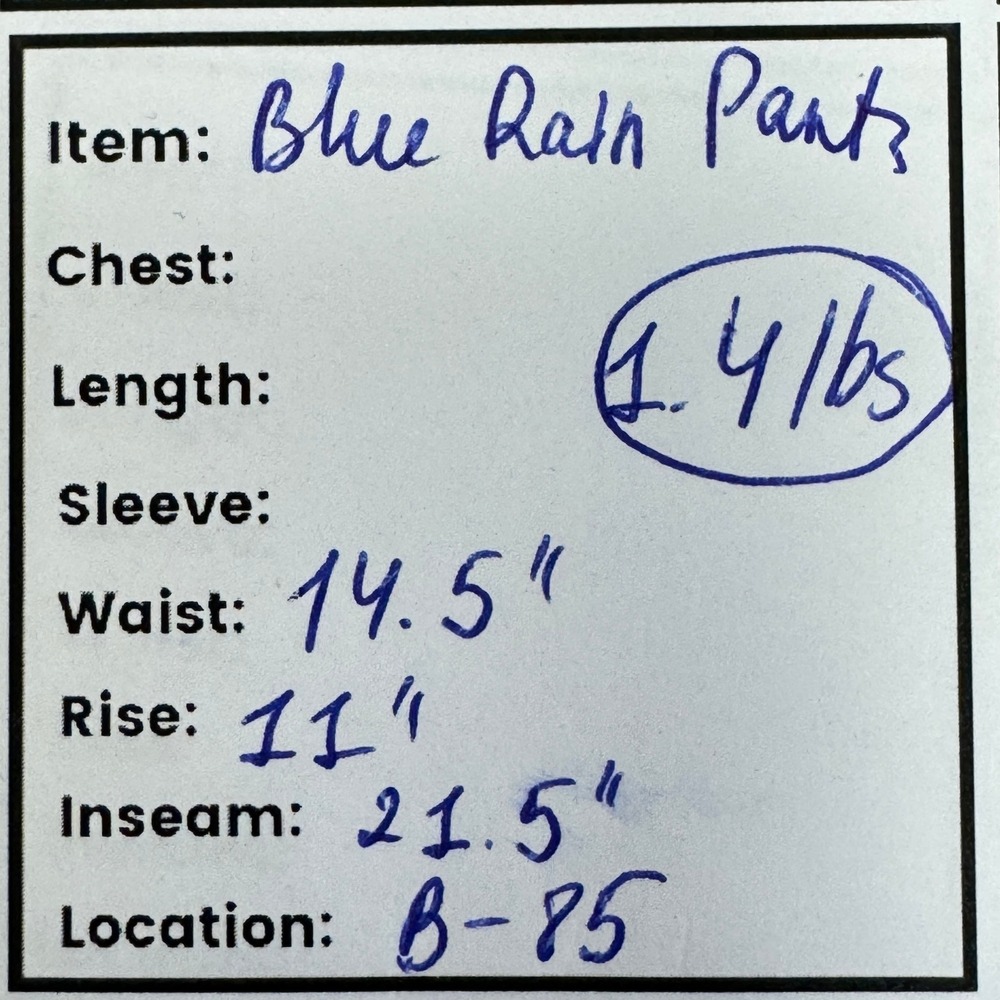 Item: Blue Rain Pants
Chest:
1.4 lbs
Length:
Sleeve:
Waist: 14.5"
Rise: 11"
Inseam: 21.5"
Location: B-85